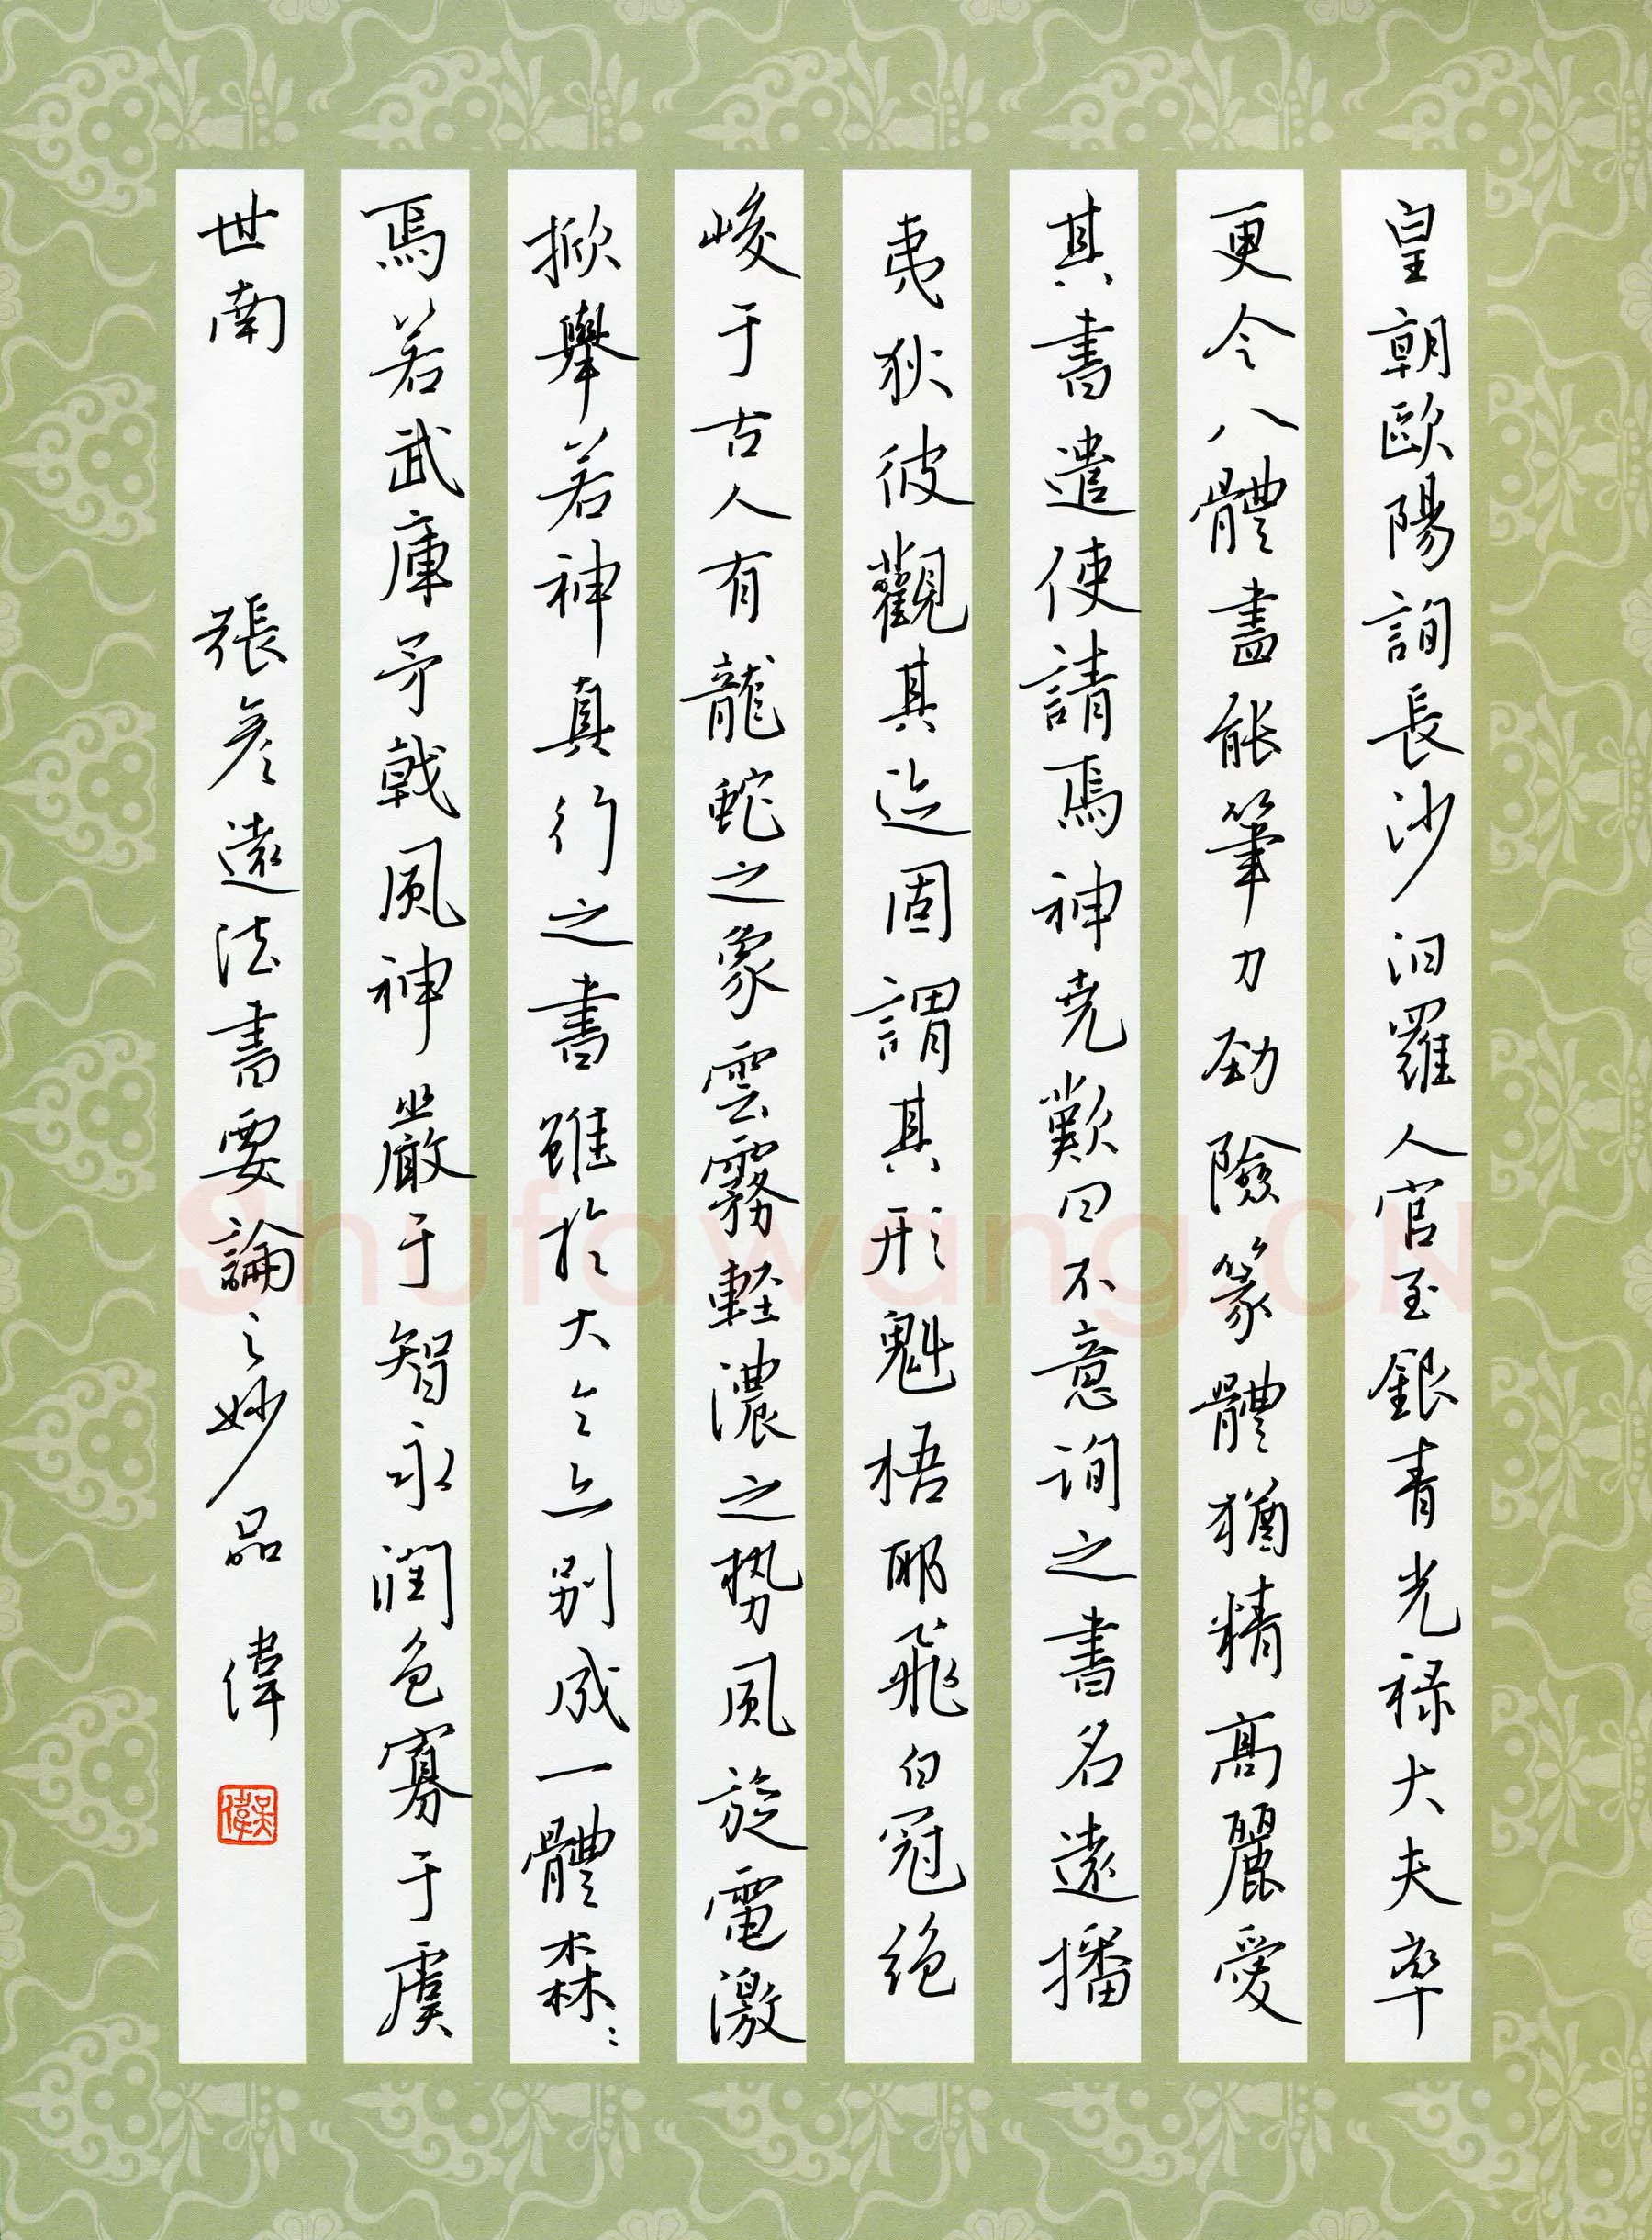 皇朝歐陽詢長沙汨羅人官至銀青光祿大夫率
更令八體盡能筆力勁險篆體猶精高麗愛
其書遣使請焉神堯歎曰不意询之書名遠播
夷狄彼觀其迹固謂其形魁梧耶飛白冠绝
峻于古人有龍蛇之象雲霧軽濃之势風旋電激
掀舉若神真行之書雖於大令亦别成一體森〻
焉若武庫矛戟風神嚴于智永潤色寡于虞
世南 張彦遠法書要論之妙品 偉
吴偉
Shufawang.CN